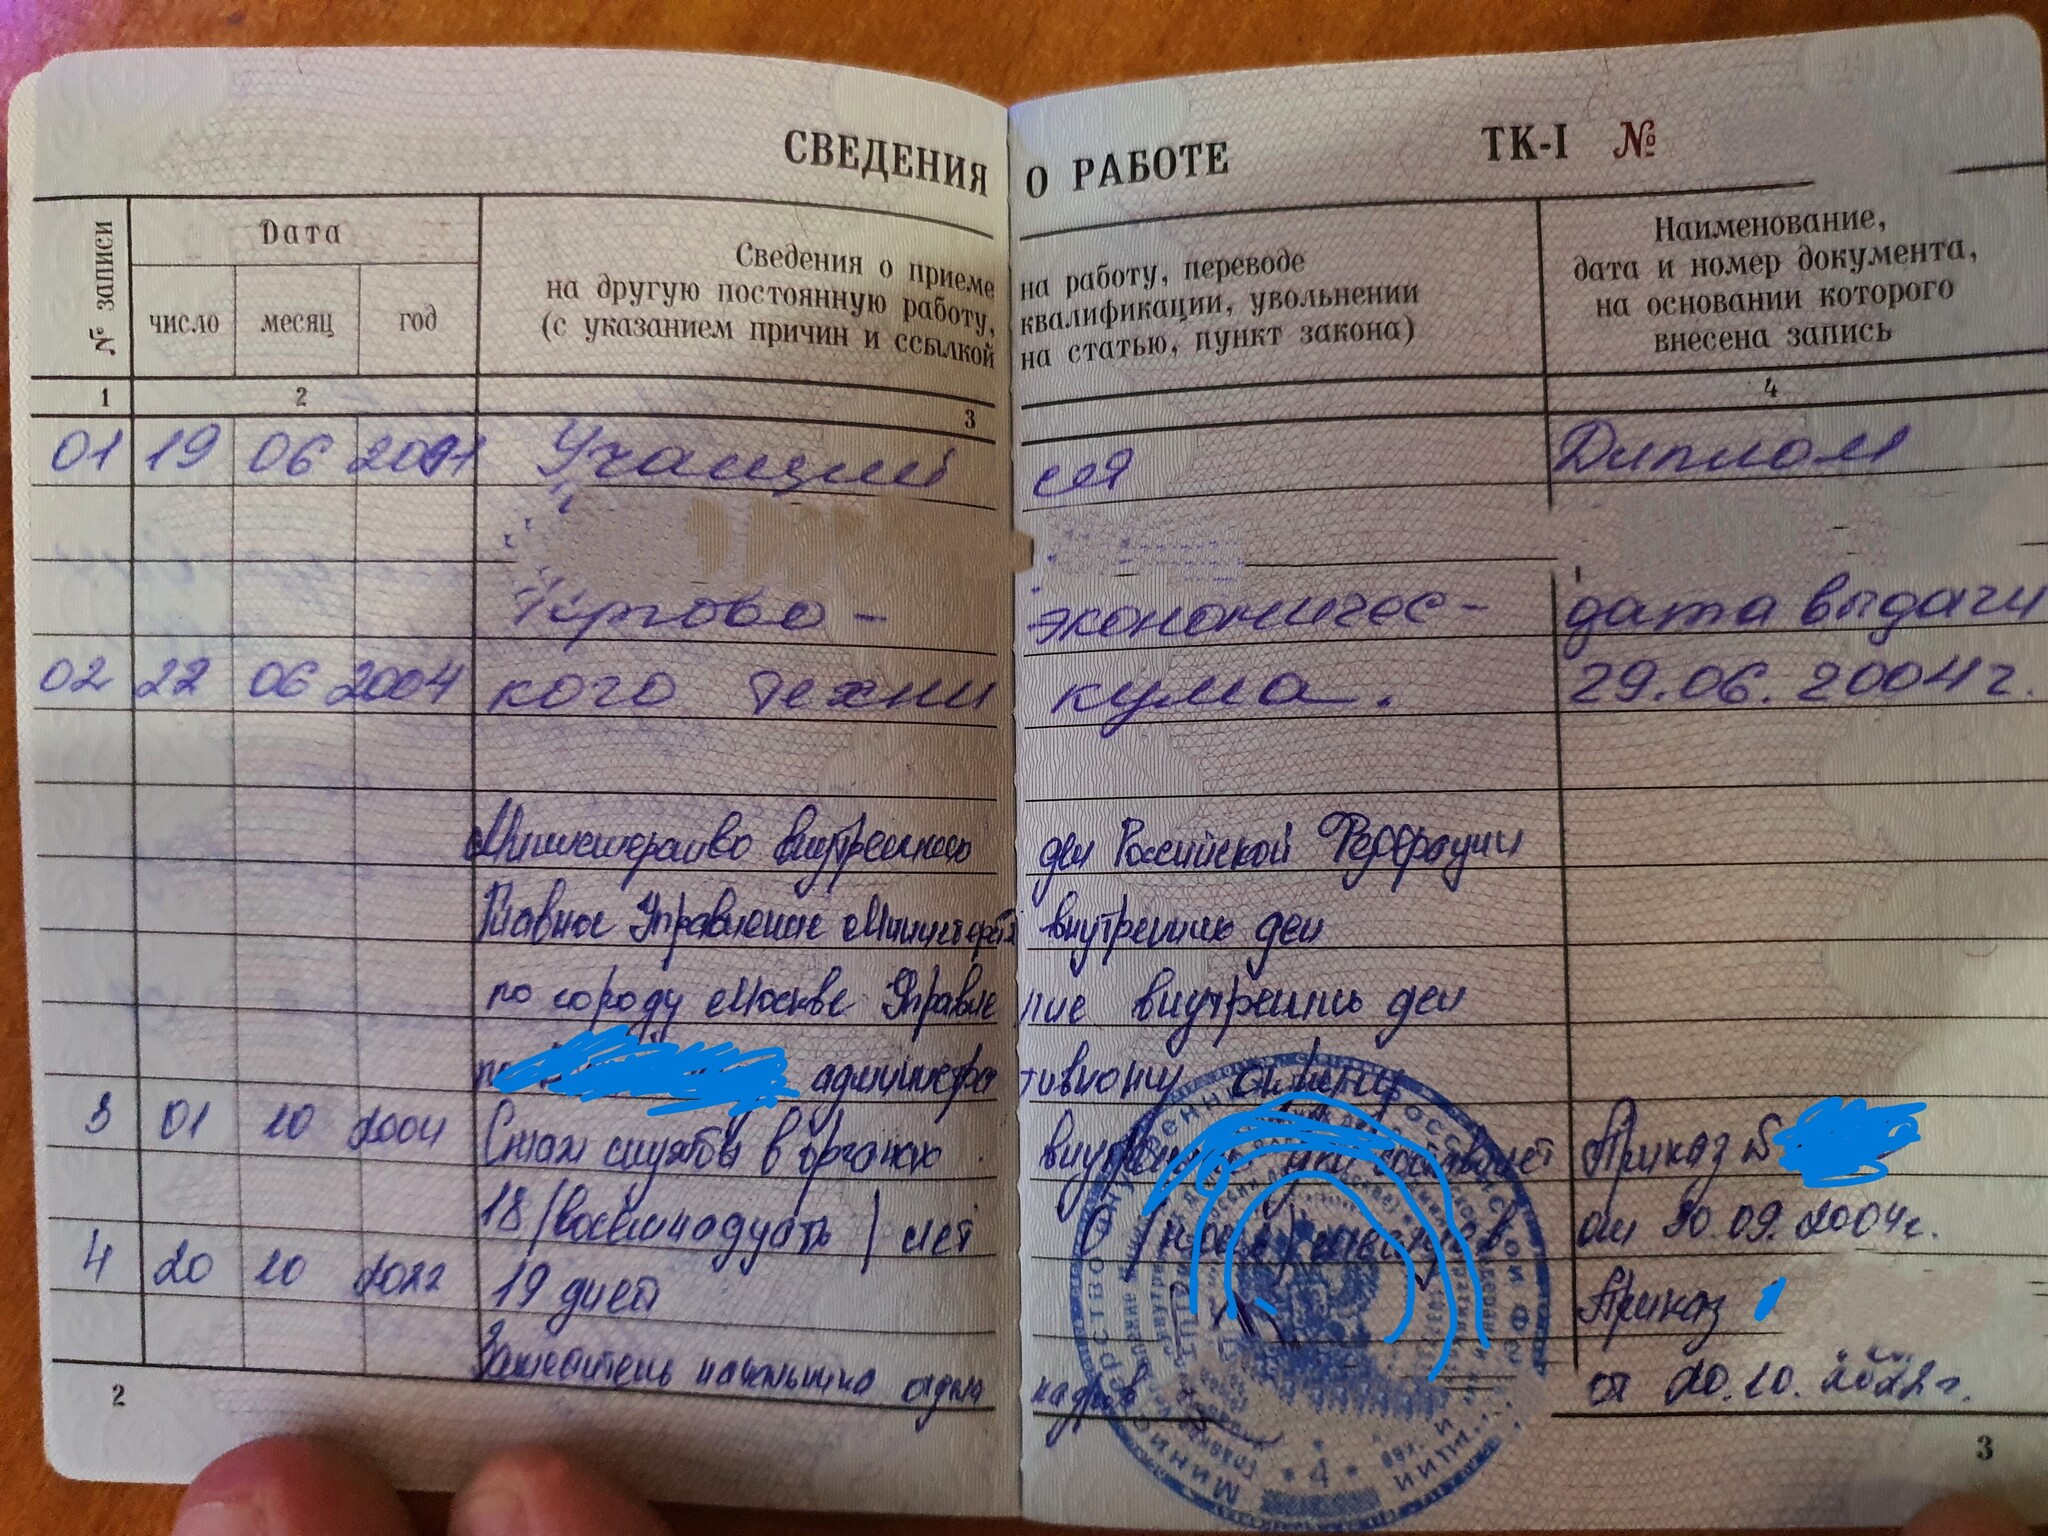 СВЕДЕНИЯ О РАБОТЕ ТК-I №
№ записи
Дата
число месяц год
Сведения о приеме на работу, переводе
на другую постоянную работу, квалификации, увольнении
(с указанием причин и ссылкой на статью, пункт закона)
Наименование,
дата и номер документа,
на основании которого
внесена запись
1 2 3 4
01 19 06 Учащий ся Диплом
экономичес- дата выдачи
02 22 06 2004 кого техни кума. 29.06.2004г.
Министерство внутренних дел Российской Федерации
Главное Управление Министерств внутренних дел
по городу Москве Управле ние внутренних дел
администра тивному округу
3 01 10 2004 Стаж службы в органах внутренних дел составляет Приказ №
18 /восемнадцать/ лет 0 /ноль/ месяцев от 30.09.2004г.
4 20 10 2022 19 дней Приказ
Заместитель начальника отдела кадров от 20.10.2022г.
2 3